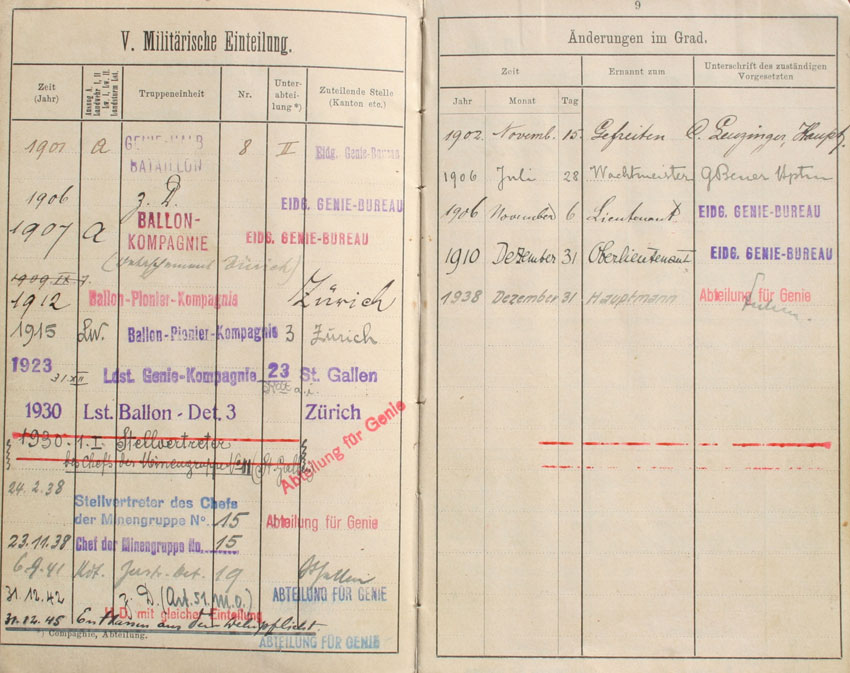 V. Militärische Einteilung.
Zeit (Jahr)
Auszug A. Landwehr I, II Lw. I, Lw. II. Landsturm Lst.
Truppeneinheit
Nr.
Unterabteilung *)
Zuteilende Stelle (Kanton etc.)
1901 A GENIE-HALB 8 II Eidg. Genie-Bureau
BATAILLON
1906 z. D. EIDG. GENIE-BUREAU
1907 A BALLON-
KOMPAGNIE EIDG. GENIE-BUREAU
Zürich)
1909 IX
1912 Ballon-Pionier-Kompagnie Zürich
1915 Lw. Ballon-Pionier-Kompagnie 3 Zürich
1923 31 XII Ldst. Genie-Kompagnie 23 St. Gallen
1930 Lst. Ballon-Det. 3 Zürich
1930. 1. I. Stellvertreter
des Chefs der Minengruppe No
Abteilung für Genie
24.2.38
Stellvertreter des Chefs
der Minengruppe No. 15 Abteilung für Genie
23.11.38 Chef der Minengruppe No. 15
41 Kdt. Det. 19 St. Gallen
31.12.42 z. D. (Art. 51 M.O.) ABTEILUNG FÜR GENIE
H.D. mit gleicher Einteilung
31.12.45 Entlassen aus der Wehrpflicht
*) Compagnie, Abteilung.
ABTEILUNG FÜR GENIE
9
Änderungen im Grad.
Zeit
Ernannt zum
Unterschrift des zuständigen Vorgesetzten
Jahr Monat Tag
1902. Novemb. 15. Gefreiten C. Leuzinger, Hauptm.
1906 Juli 28 Wachtmeister Hptm
1906 November 6 Lieutenant EIDG. GENIE-BUREAU
1910 Dezember 31 Oberlieutenant EIDG. GENIE-BUREAU
1938 Dezember 31 Hauptmann Abteilung für Genie